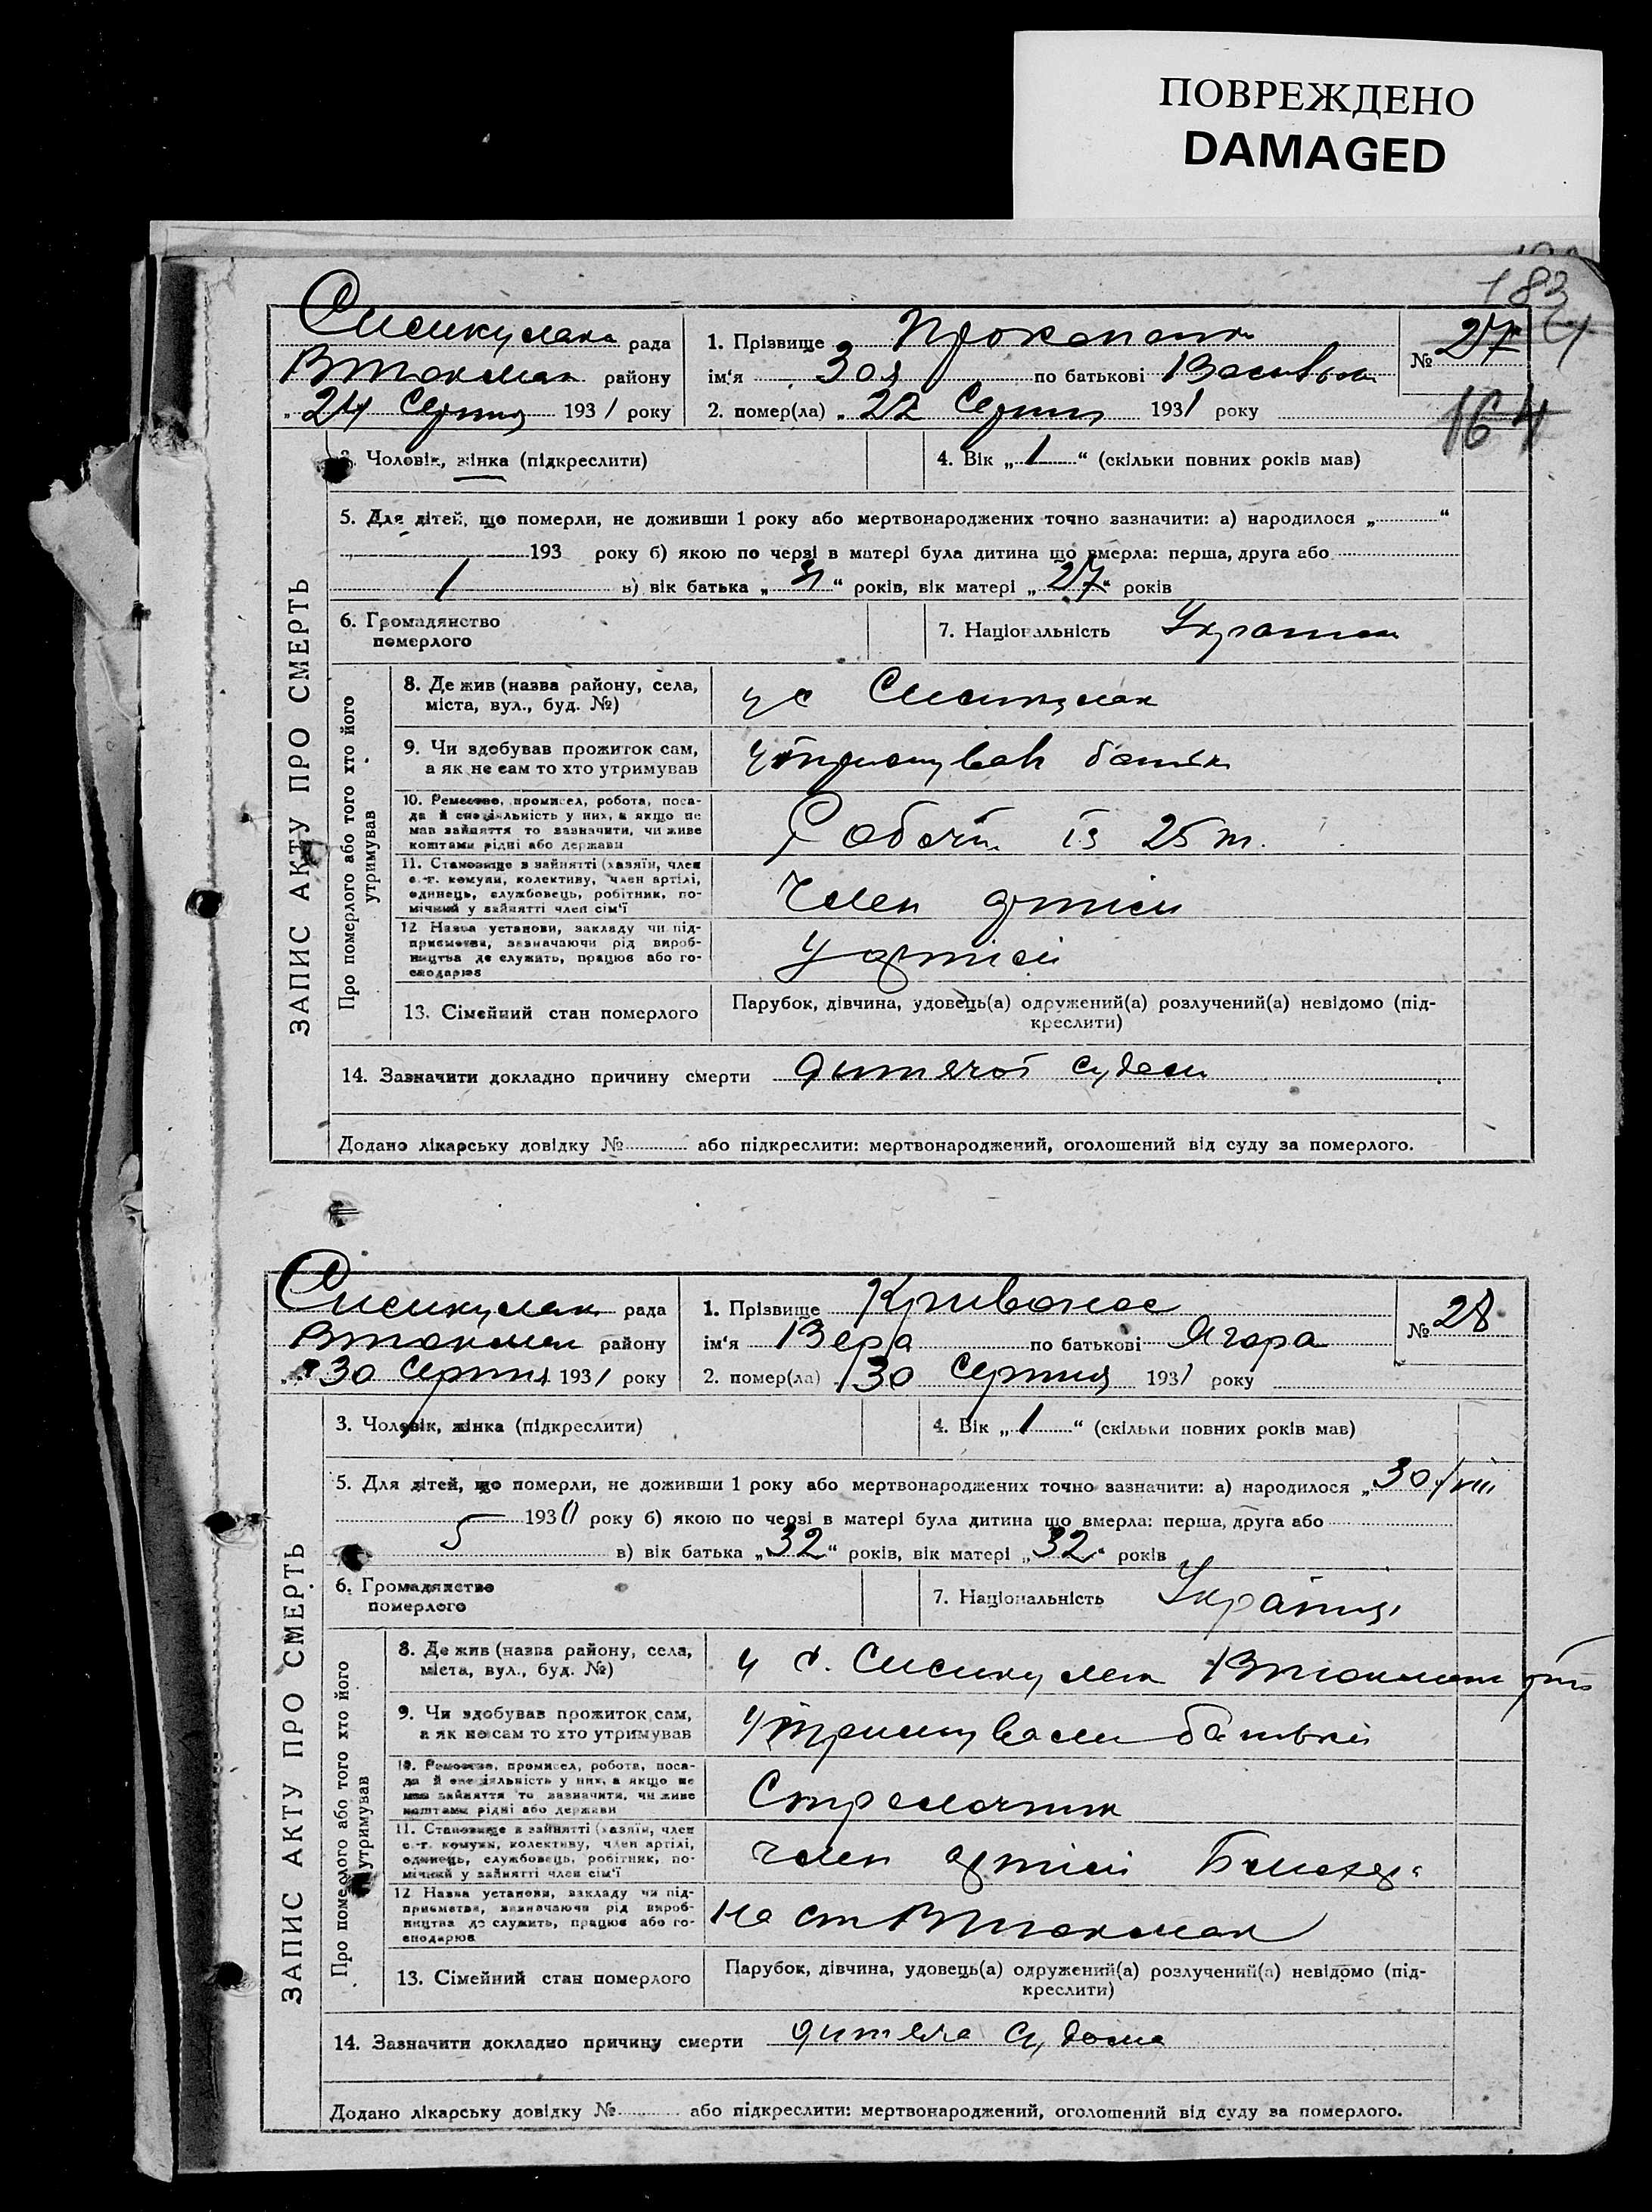 ПОВРЕЖДЕНО
DAMAGED
183
рада 1. Прізвище № 27
Втокмак району ім'я Зоя по батькові
„24 Серпня 1931 року 2. помер(ла) „22 Серпня 1931 року
164
3. Чоловік, жінка (підкреслити) 4. Вік „1“ (скільки повних років мав)
5. Для дітей, що померли, не доживши 1 року або мертвонароджених точно зазначити: а) народилося „ “
193 року б) якою по черзі в матері була дитина що вмерла: перша, друга або
1 в) вік батька „ “ років, вік матері „27“ років
6. Громадянство
померлого
7. Національність
ЗАПИС АКТУ ПРО СМЕРТЬ
Про померлого або того хто його
утримував
8. Де жив (назва району, села,
міста, вул., буд. №)
у с
9. Чи здобував прожиток сам,
а як не сам то хто утримував
утримував батьк
10. Ремество, промисел, робота, поса-
да й спеціяльність у них, а якщо не
мав зайняття то зазначити, чи живе
коштами рідні або держави
Робочи із 25 т.
11. Становище в зайнятті (хазяїн, член
с.-г. комуни, колективу, член артілі,
одинець, службовець, робітник, по-
мічний у зайнятті член сім'ї
Член артіли
12 Назва установи, закладу чи під-
приємства, зазначаючи рід вироб-
ництва де служить, працює або го-
сподарює
У артілі
13. Сімейний стан померлого
Парубок, дівчина, удовець(а) одружений(а) розлучений(а) невідомо (під-
креслити)
14. Зазначити докладно причину смерти дитячої
Додано лікарську довідку № або підкреслити: мертвонароджений, оголошений від суду за померлого.
рада 1. Прізвище Кривонос № 28
Втокмак району ім'я Вера по батькові Ягора
30 Серпня 1931 року 2. помер(ла) „30 Серпня 1931 року
3. Чоловік, жінка (підкреслити) 4. Вік „1“ (скільки повних років мав)
5. Для дітей, що померли, не доживши 1 року або мертвонароджених точно зазначити: а) народилося „30/VIII
1930 року б) якою по черзі в матері була дитина що вмерла: перша, друга або
5 в) вік батька „32“ років, вік матері „32“ років
6. Громадянство
померлого
7. Національність
ЗАПИС АКТУ ПРО СМЕРТЬ
Про померлого або того хто його
утримував
8. Де жив (назва району, села,
міста, вул., буд. №)
у с. Втокмак
9. Чи здобував прожиток сам,
а як не сам то хто утримував
утримували батьки
10. Ремество, промисел, робота, поса-
да й спеціяльність у них, а якщо не
мав зайняття то зазначити, чи живе
коштами рідні або держави
Стрелочник
11. Становище в зайнятті (хазяїн, член
с.-г. комуни, колективу, член артілі,
одинець, службовець, робітник, по-
мічний у зайнятті член сім'ї
член артілі
12 Назва установи, закладу чи під-
приємства, зазначаючи рід вироб-
ництва де служить, працює або го-
сподарює
На ст Втокмак
13. Сімейний стан померлого
Парубок, дівчина, удовець(а) одружений(а) розлучений(а) невідомо (під-
креслити)
14. Зазначити докладно причину смерти дитяча судома
Додано лікарську довідку № або підкреслити: мертвонароджений, оголошений від суду за померлого.